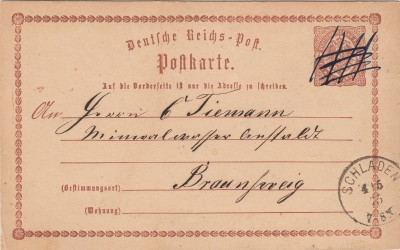 Deutsche Reichs-Post.
Postkarte.
Auf die Vorderseite ist nur die Adresse zu schreiben.
An Herrn C Tiemann
Mineralwasser Anstaldt
Braunschweig
(Bestimmungsort)
(Wohnung)
SCHLADEN